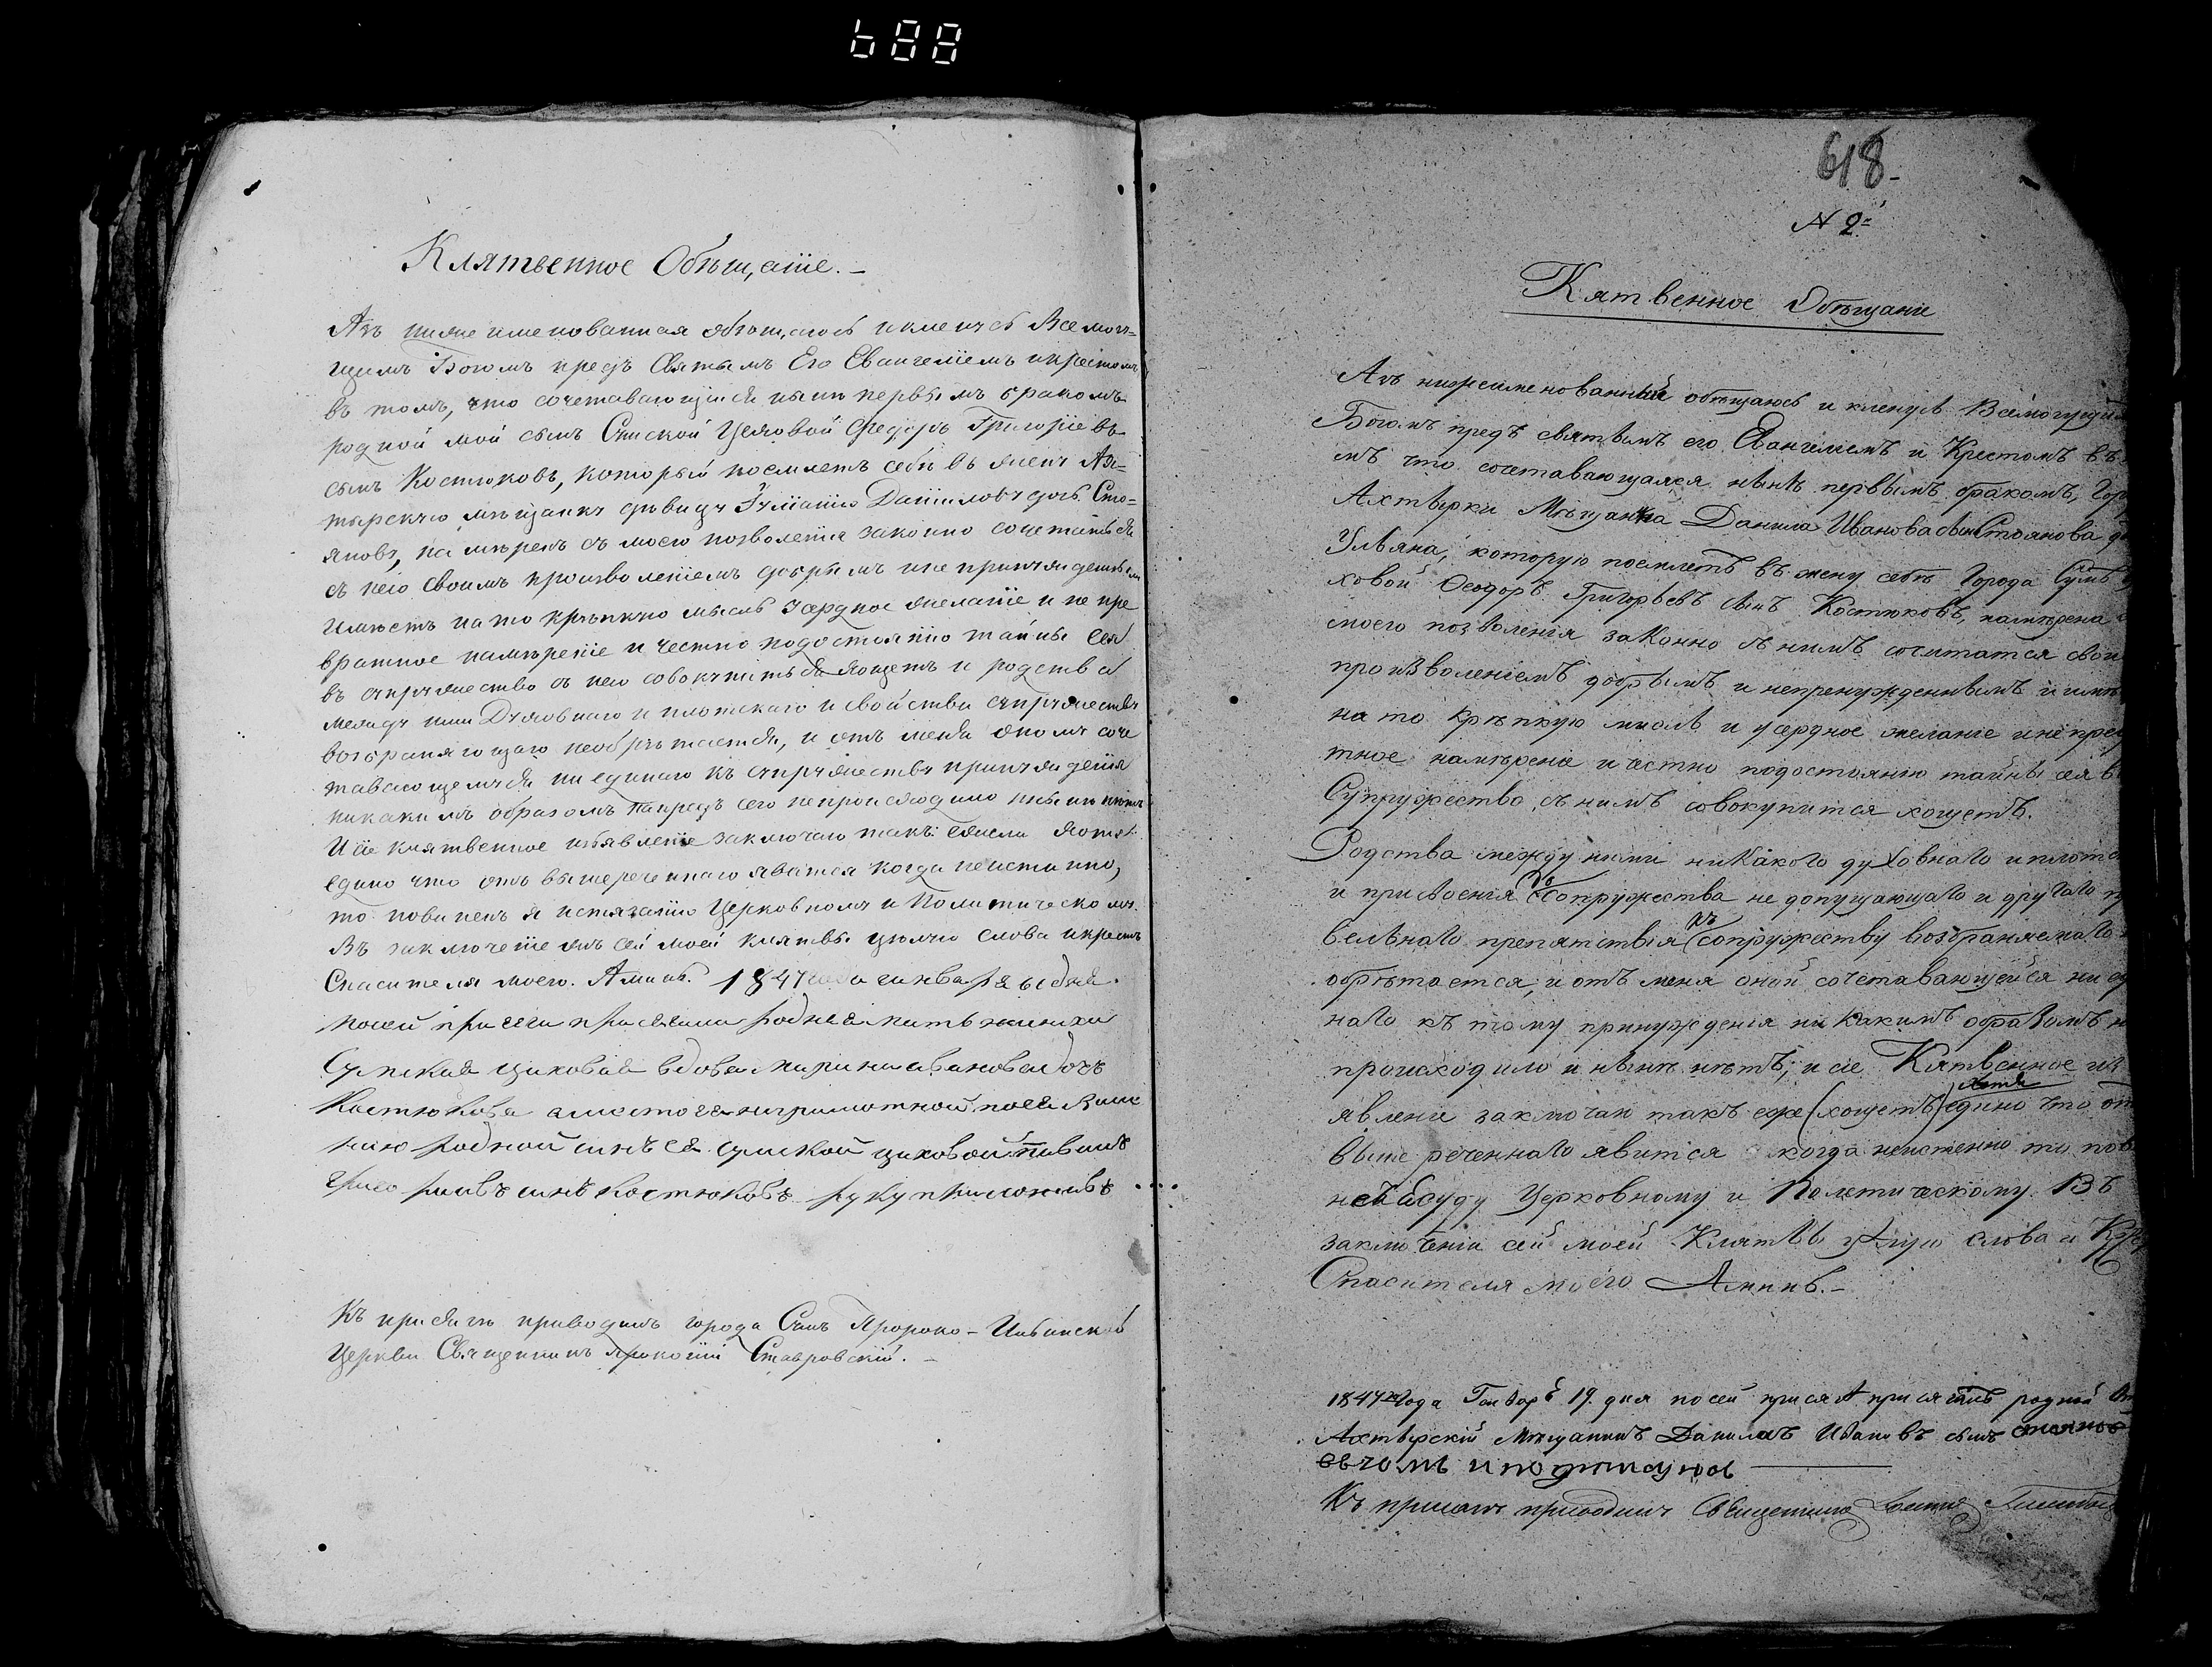 688
Клятвенное Обѣщаніе.-
Азъ ниже именованная обѣщаюсь и клянусь Всемогу-
щимъ Богомъ предъ Святымъ Его Евангеліемъ и крестомъ
въ томъ, что сочетавающійся нынѣ первымъ бракомъ
родной мой сынъ Сумской Цеховой Федоръ Григоріевъ
сынъ Костюковъ, который поемлетъ себѣ въ жену Ах-
тырскую мѣщанку дѣвицу Ульянію Даніилову дочь Сто-
янову, намѣренъ съ моего позволенія законно сочетаться
съ нею своимъ произволеніемъ добрымъ и непринужденнымъ
имѣетъ на то крѣпкую мысль усердное желаніе и не пре
вратное намѣреніе и честно по достоянію тайны сея
въ супружество съ нею совокупиться хощетъ и родства
между ими Духовнаго и плотскаго и свойства супружеству
возбраняющаго необрѣтается, и отъ меня оному соче
тавающемуся ни единаго къ супружеству принужденія
никакимъ образомъ напредъ сего непроисходило и нынѣ нѣтъ
И сіе клятвенное изъявленіе заключаю такъ: ежели хотя
едино что отъ вышереченнаго явится когда неистинно,
то повиненъ я истязанію Церковному и Политическому.
Въ заключеніе жъ сей моей клятвы цѣлую слова и крестъ
Спасителя моего. Аминь. 1847 года генваря дня
посей присеги присегала родная мать жениха
Сумская цеховая вдова Марина Иванова дочь
Костюкова а место ея неграмотной по ея веле
нию родной синъ ея сумской цеховой
Григориевъ синъ Костюковъ руку приложивъ
Къ присягѣ приводилъ города Сумъ Пророко-Ильинской
Церкви Священникъ Прокопій Ставровскій.-
618-
N 2.
Кятвенное Обѣщаніе
Азъ нижеименованный обѣщаюсь и клянусь Всемогущи
Богомъ предъ святымъ его Евангеліемъ и Крестомъ въ
мъ что сочетавающаяся нынѣ первымъ бракомъ, Гор
Ахтырки Мѣщанка Данила Иванова сына Стоянова д
Ульяна, которую поемлетъ въ жену себѣ Города Сумъ
ховой Ѳеодоръ Григорьевъ сынъ Костюковъ, намѣрена
моего позволенія законно съ нимъ сочитатся свои
произволеніемъ добрымъ и непренужденнымъ и имѣ
на то крѣпкую мысль и усердное желаніе и непрев
тное намѣреніе и честно подостоянію тайны сея в
Супружество съ нимъ совокупится хощетъ.
Родства между ними никакого духовнаго и плотс
и присвоенія къ сопружества не допущающаго и другаго п
вельнаго препятствія къ (сопружеству возбраняемаго
обрѣтается, и отъ меня оной сочетавающейся ни ед
наго къ тому принужденія никакимъ образомъ н
происходило и нынѣ нѣтъ; и сіе Кятвенное из
явленіе заключаю такъ еже (хощетъ) хотя едино что от
выше реченнаго явится когда неистенно то пов
ненъ буду Церковному и Полетическому. Въ
заключеніи сей моей Клятвы цѣлую слова и Кр
Спасителя моего Аминь.-
1847 года Генваря 19. дня по сей присягѣ присягалъ родный
Ахтырскій Мѣщанинъ Данилъ Ивановъ сынъ Стояновъ
въ чомъ и подписуюсь
Къ присягѣ приводилъ Священникъ